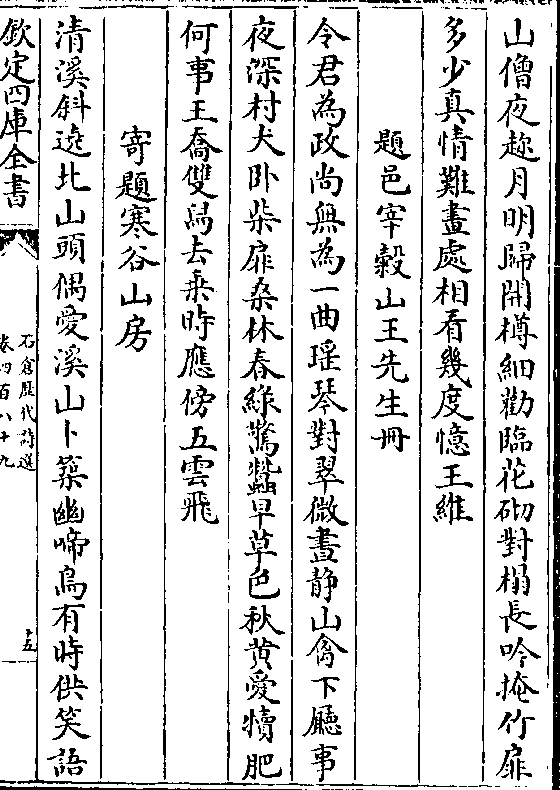 山僧夜趂月明歸開樽細勸臨花砌對榻長吟掩竹扉
多少真情難畫處相看幾度憶王維
題邑宰穀山王先生冊
令君為政尚無為一曲瑶琴對翠微晝静山禽下廳事
夜深村犬卧柴扉桑林春綠驚蠶早草色秋黄愛犢肥
何事王喬雙舄去乗時應傍五雲飛
寄題寒谷山房
清溪斜遶北山頭偶愛溪山卜築幽啼鳥有時供笑語
欽定四庫全書
石倉歴代詩選
卷四百八十九
十五